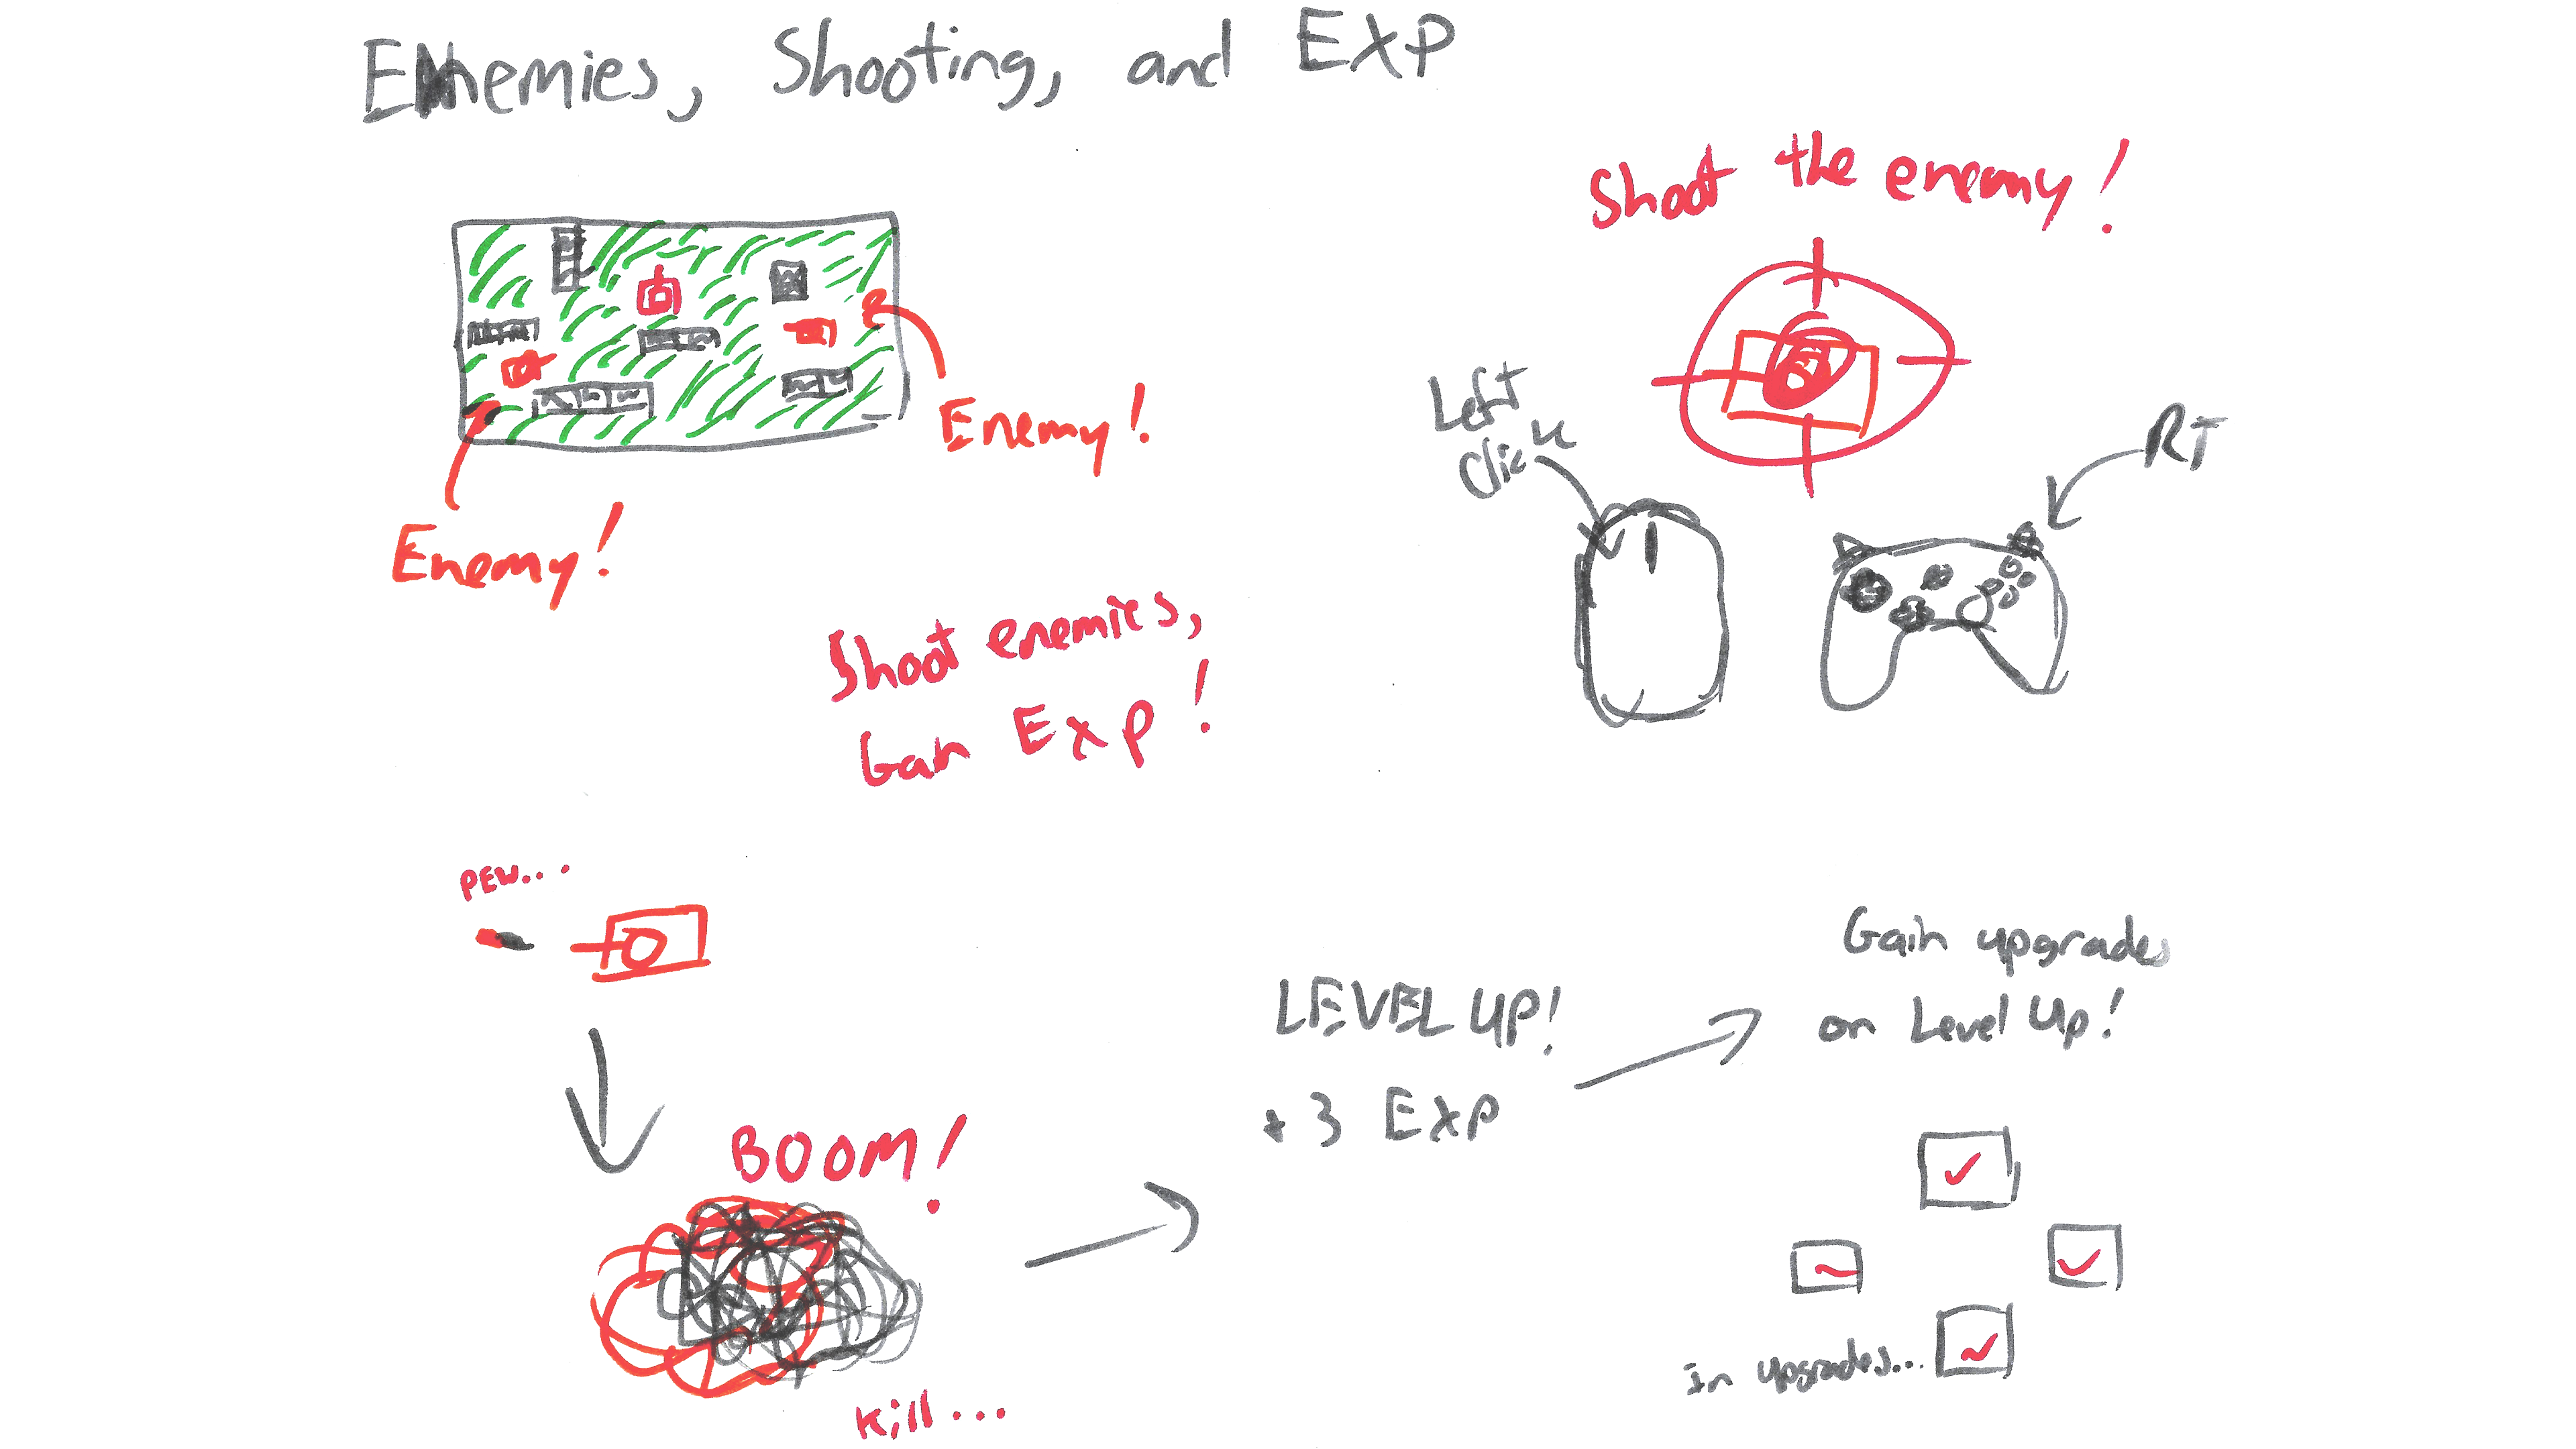 Enemies, Shooting, and EXP
Shoot the enemy!
Left
Click
RT
Enemy!
Enemy!
Shoot enemies,
Gain Exp!
PEW...
BOOM!
Kill...
LEVEL UP!
+3 EXP
Gain upgrades
on Level Up!
in upgrades...